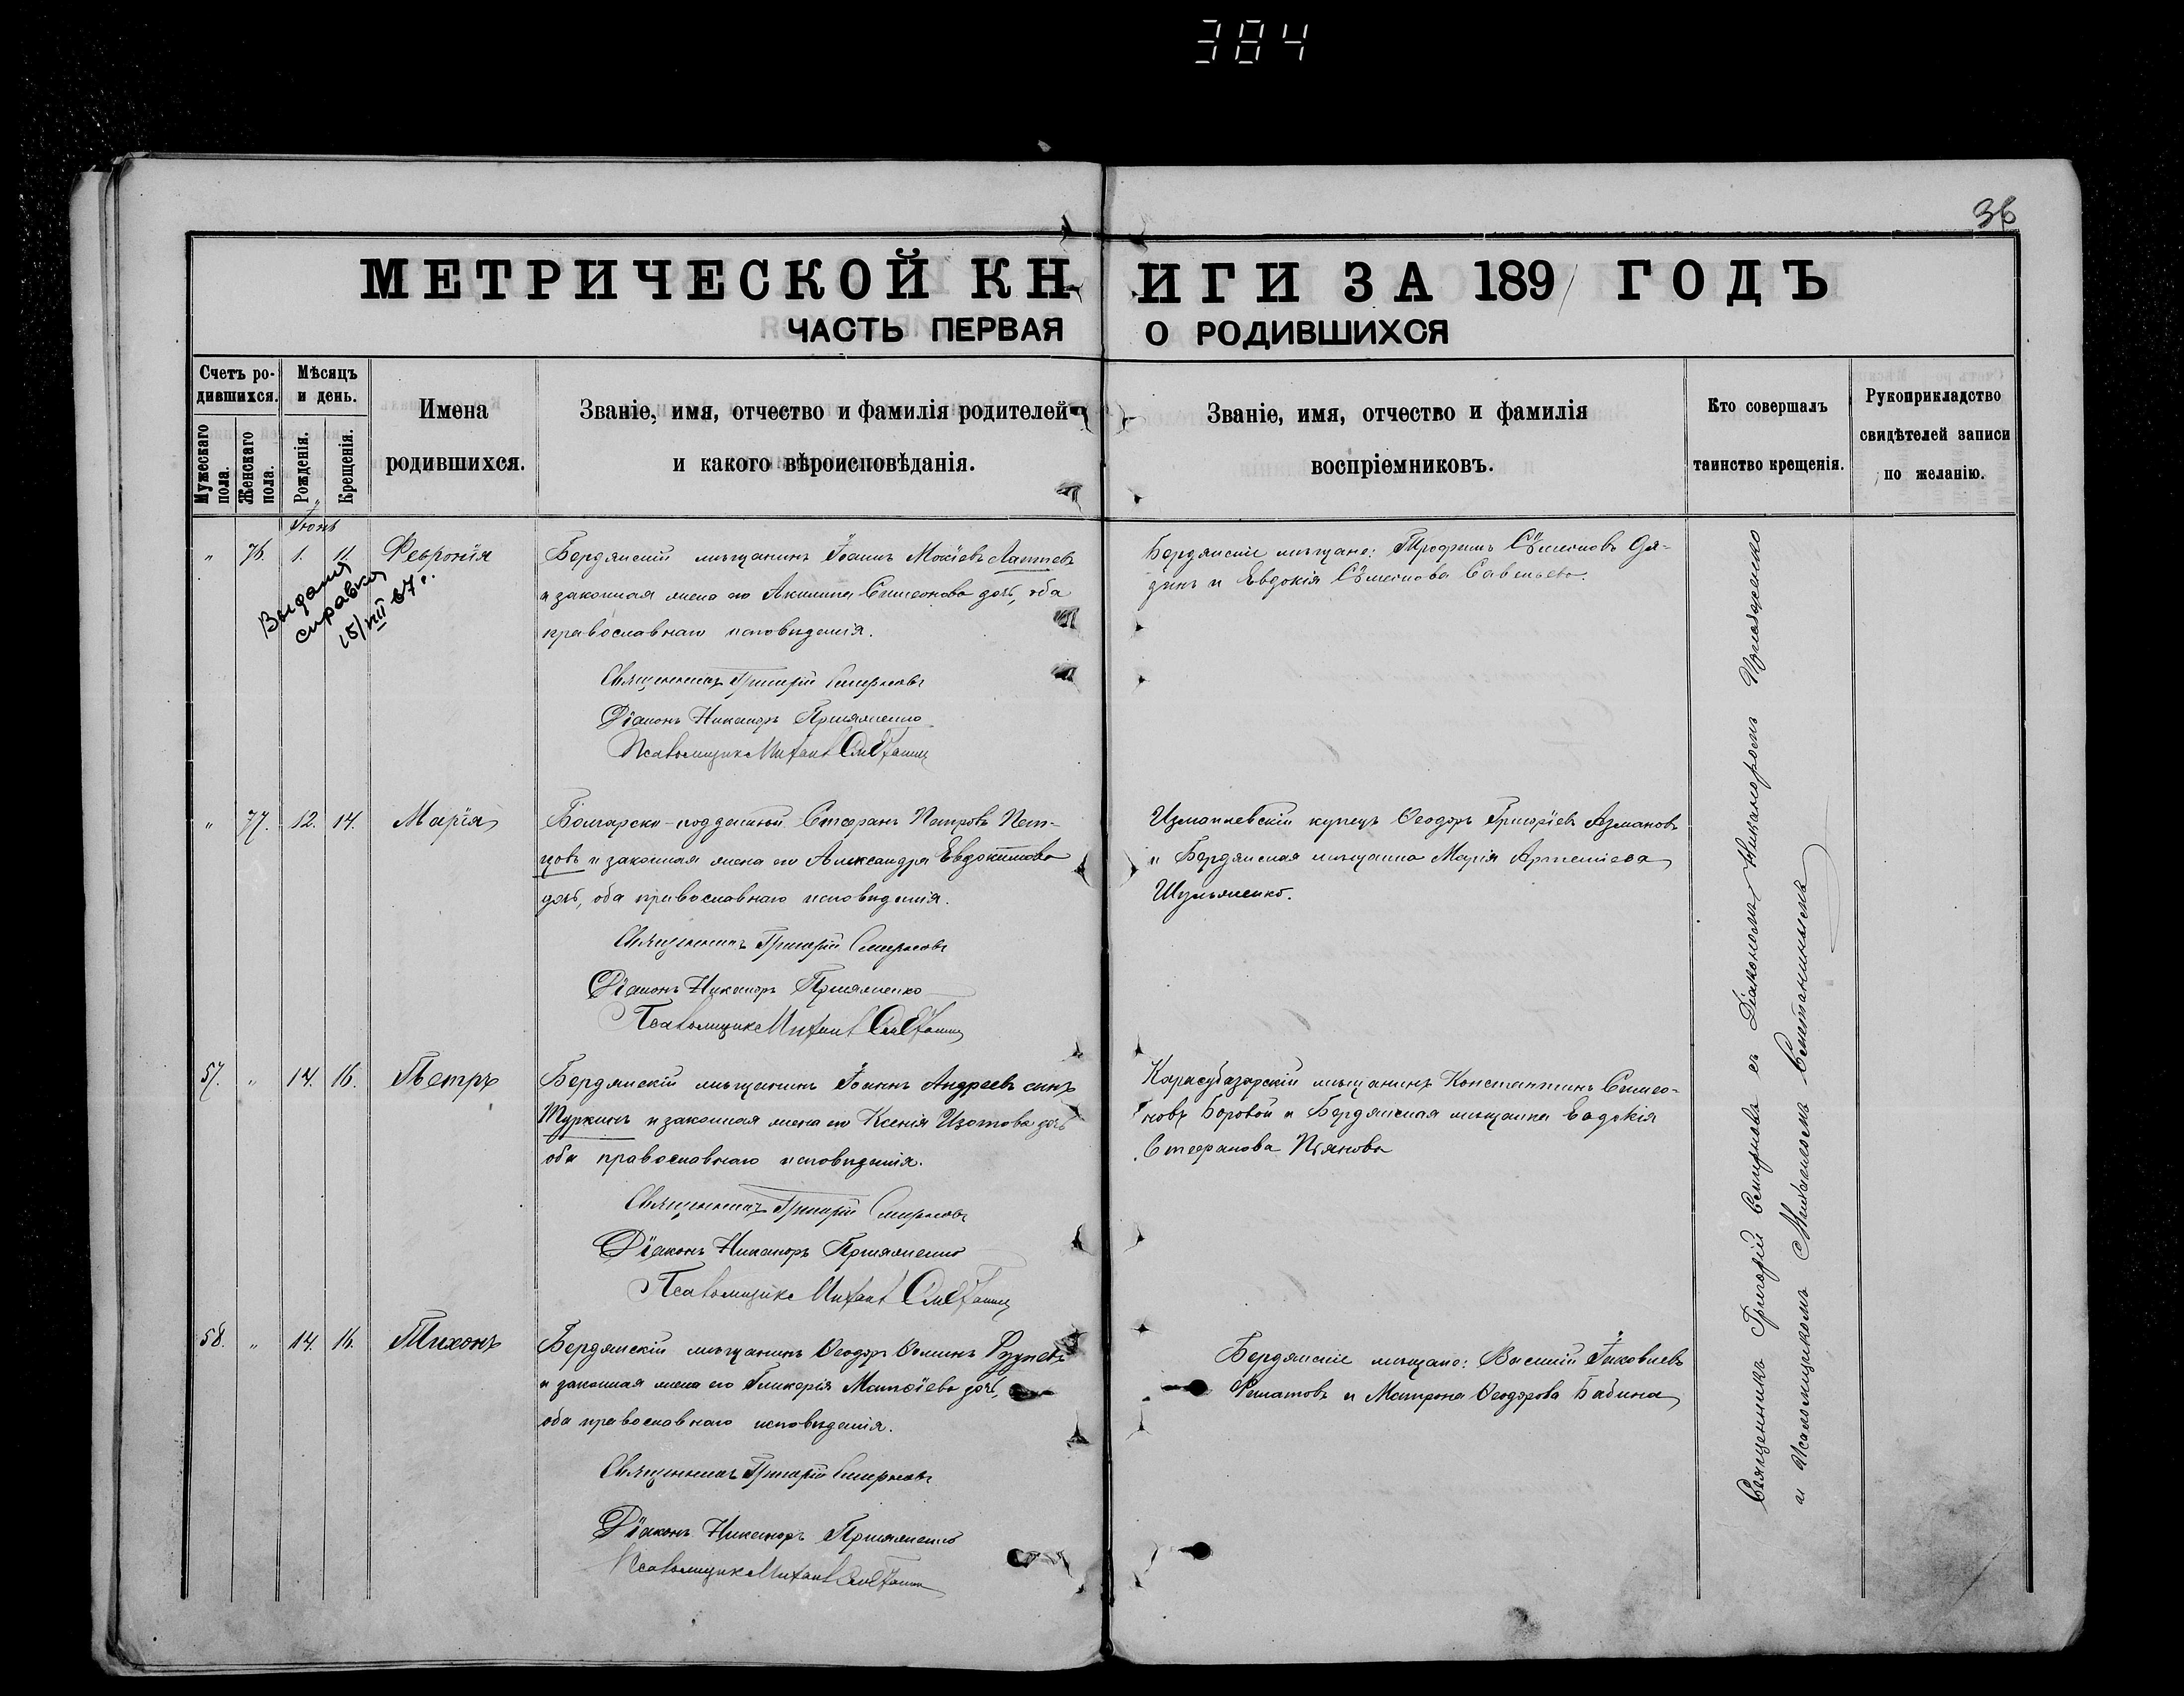 384
36
МЕТРИЧЕСКОЙ КНИГИ ЗА 1891 ГОДЪ
ЧАСТЬ ПЕРВАЯ О РОДИВШИХСЯ
Счетъ ро-
дившихся.
Мужескаго
пола.
Женскаго
пола.
Мѣсяцъ
и день.
Рожденія.
Крещенія.
Имена
родившихся.
Званіе, имя, отчество и фамилія родителей
и какого вѣроисповѣданія.
Званіе, имя, отчество и фамилія
воспріемниковъ.
Кто совершалъ
таинство крещенія.
Рукоприкладство
свидѣтелей записи
по желанію.
Іюнь
" 76. 1. 11. Февронія
Выдана
справка
15/VIII 67 г.
Бердянскій мѣщанинъ Іоаннъ Мокіевъ Лаптевъ
и законная жена его Акилина Симеонова дочь, оба
православнаго исповѣданія.
Священникъ Григорій Смирновъ
Діаконъ Никаноръ
Псаломщикъ Михаилъ
Бердянскіе мѣщане: Трофимъ Сѵмеоновъ
и Евдокія Сѵмеонова Савельева.
" 77. 12. 14. Марія
Болгарско-подданный Стефанъ Петровъ Пет-
ковъ и законная жена его Александра Евдокимова
дочь, оба православнаго исповѣданія.
Священникъ Григорій Смирновъ
Діаконъ Никаноръ
Псаломщикъ Михаилъ
Измаилевскій купецъ Ѳеодоръ Григоріевъ Азмановъ
и Бердянская мѣщанка Марія Артеміева
Шульженко.
57. " 14. 16. Петръ
Бердянскій мѣщанинъ Іоаннъ Андреевъ сынъ
Туркинъ и законная жена его Ксенія Изотова дочь
оба православнаго исповѣданія.
Священникъ Григорій Смирновъ
Діаконъ Никаноръ
Псаломщикъ Михаилъ
Карасубазарскій мѣщанинъ Константинъ Симео-
новъ Боровой и Бердянская мѣщанка Евдокія
Стефанова
58. " 14. 16. Тихонъ
Бердянскій мѣщанинъ Ѳеодоръ Ѳоминъ
и законная жена его Гликерія Матѳіева дочь,
оба православнаго исповѣданія.
Священникъ Григорій Смирновъ
Діаконъ Никаноръ
Псаломщикъ Михаилъ
Бердянскіе мѣщане: Василій Іаковлевъ
и Матрона Ѳеодорова Бабина
Священникъ Григорій Смирновъ съ Діакономъ Никаноромъ
и Псаломщикомъ Михаиломъ Сметанинымъ